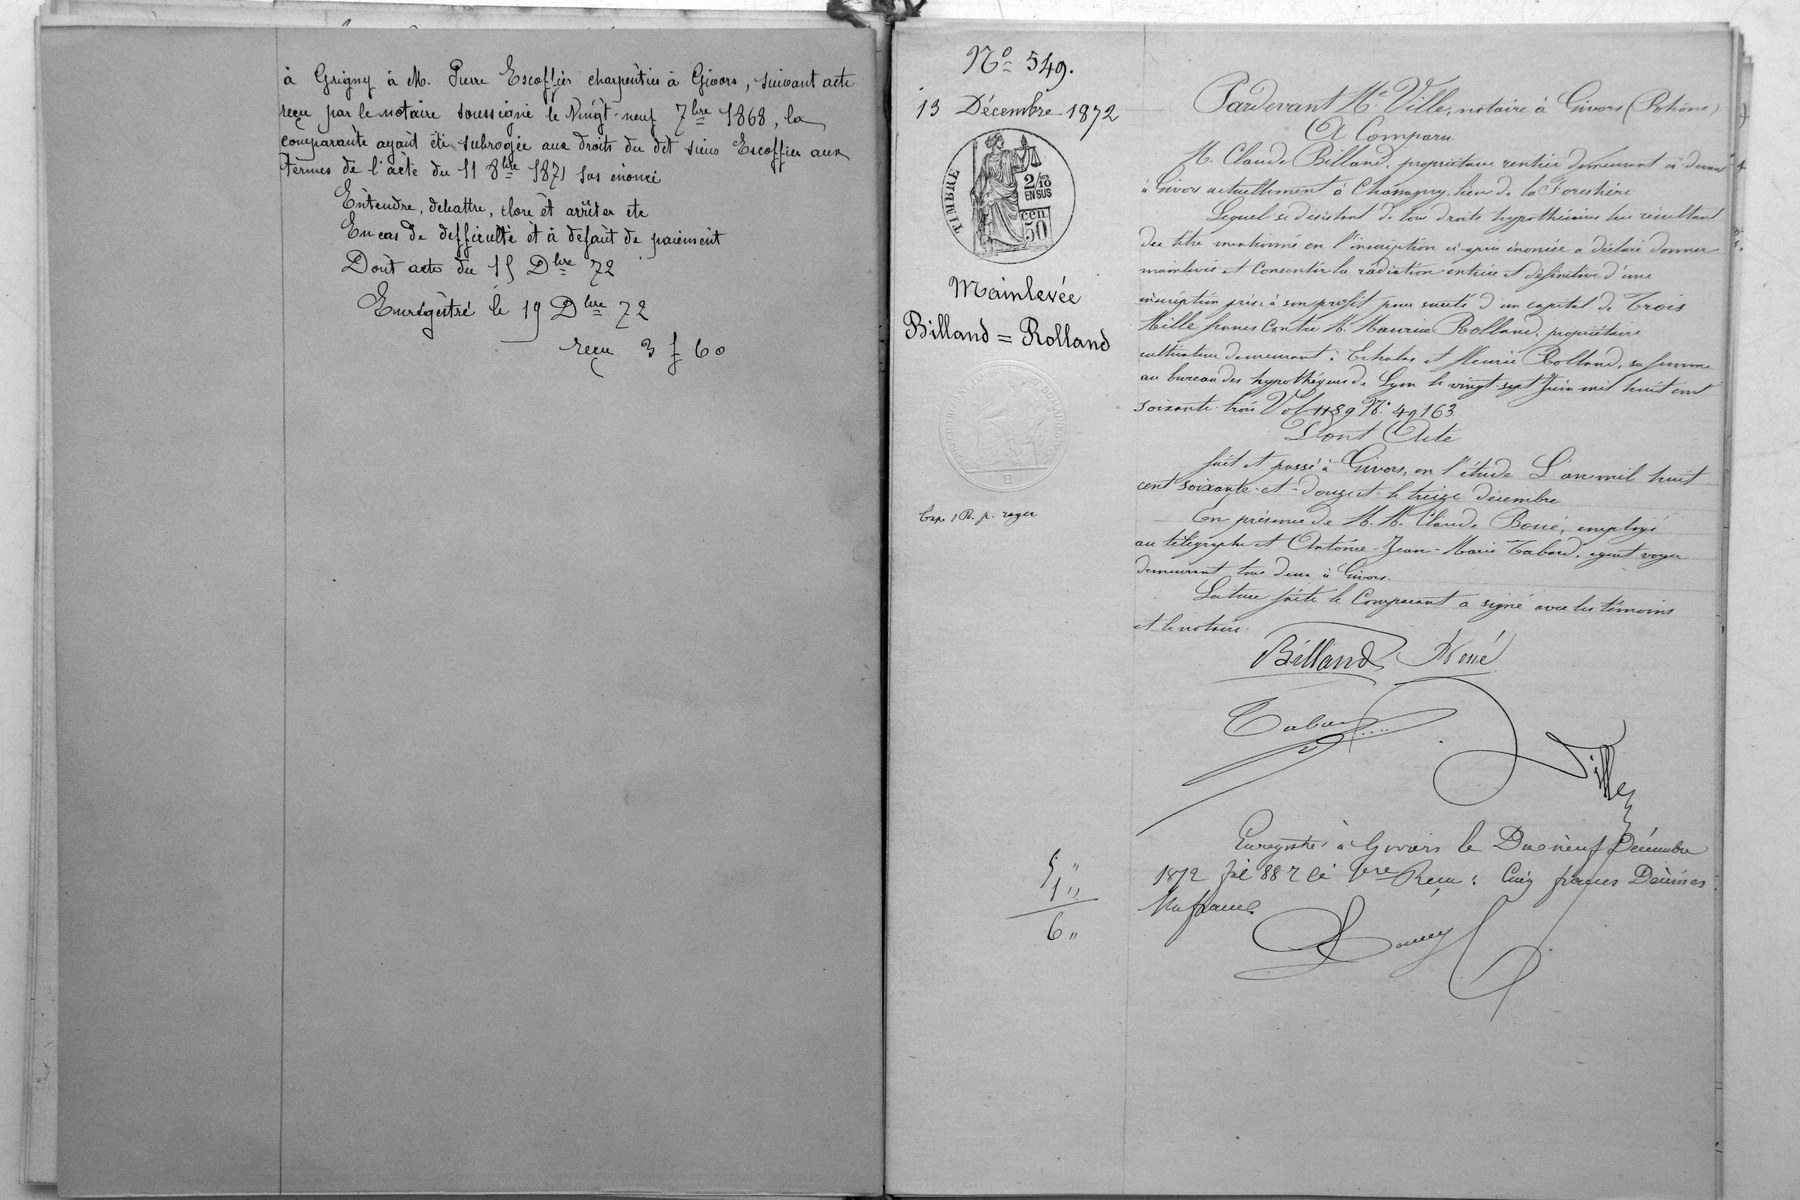 à Grigny à M. Pierre Escoffier charpentier à Givors, suivant acte
reçu par le notaire soussigné le Vingt-neuf 7bre 1868, la
comparante ayant été subrogée aux droits du dit sieur Escoffier aux
termes de l'acte du 11 8bre 1871 sus énoncé
Entendre, débattre, clore et arrêter etc
En cas de difficulté et à défaut de paiement
Dont acte du 15 Dbre 72
Enregistré le 19 Dbre 72
reçu 3 f 60
No 549.
13 Décembre 1872
TIMBRE
2/10
EN SUS
50 cen
Mainlevée
Billand = Rolland
Exp. 1 R. p. rayer
Pardevant Me Ville, notaire à Givors (Rhône)
A Comparu
M. Claude Billand, propriétaire rentier demeurant ci devant
à Givors actuellement à Chassagny, lieu de la Forestière
Lequel se désistant de tous droits hypothécaires lui résultant
du titre mentionné en l'inscription ci-après énoncée a déclaré donner
mainlevée et Consentir la radiation entière et définitive d'une
inscription prise à son profit pour sûreté d'un capital de Trois
Mille francs Contre M. Maurice Rolland, propriétaire
cultivateur demeurant à Echalas et Rolland, sa femme
au bureau des hypothèques de Lyon le vingt sept Juin mil huit cent
soixante trois Vol 1189 No. 49163
Dont Acte
fait et passé à Givors, en l'étude L'an mil huit
cent soixante-et-douze et le treize décembre
En présence de M. M. Claude Boué, employé
au télégraphe et Antoine-Jean-Marie Tabard, agent voyer
demeurant tous deux à Givors.
Lecture faite le Comparant a signé avec les témoins
et le notaire.
Billand Boué
Tabard
Ville
Enregistré à Givors le Dix neuf Décembre
1872 fol 88 Reçu : Cinq francs Décimes
Un franc
5 "
1 "
6 "